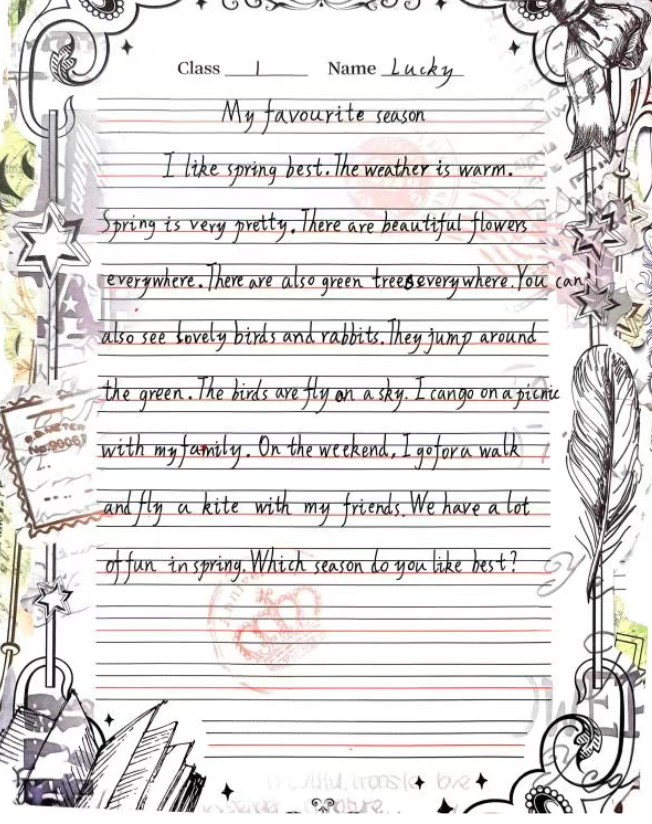 Class 1 Name Lucky
My favourite season
I like spring best. The weather is warm.
Spring is very pretty. There are beautiful flowers
everywhere. There are also green trees everywhere. You can
also see lovely birds and rabbits. They jump around
the green. The birds are fly on a sky. I can go on a picnic
with my family. On the weekend, I go for a walk
and fly a kite with my friends. We have a lot
of fun in spring. Which season do you like best?